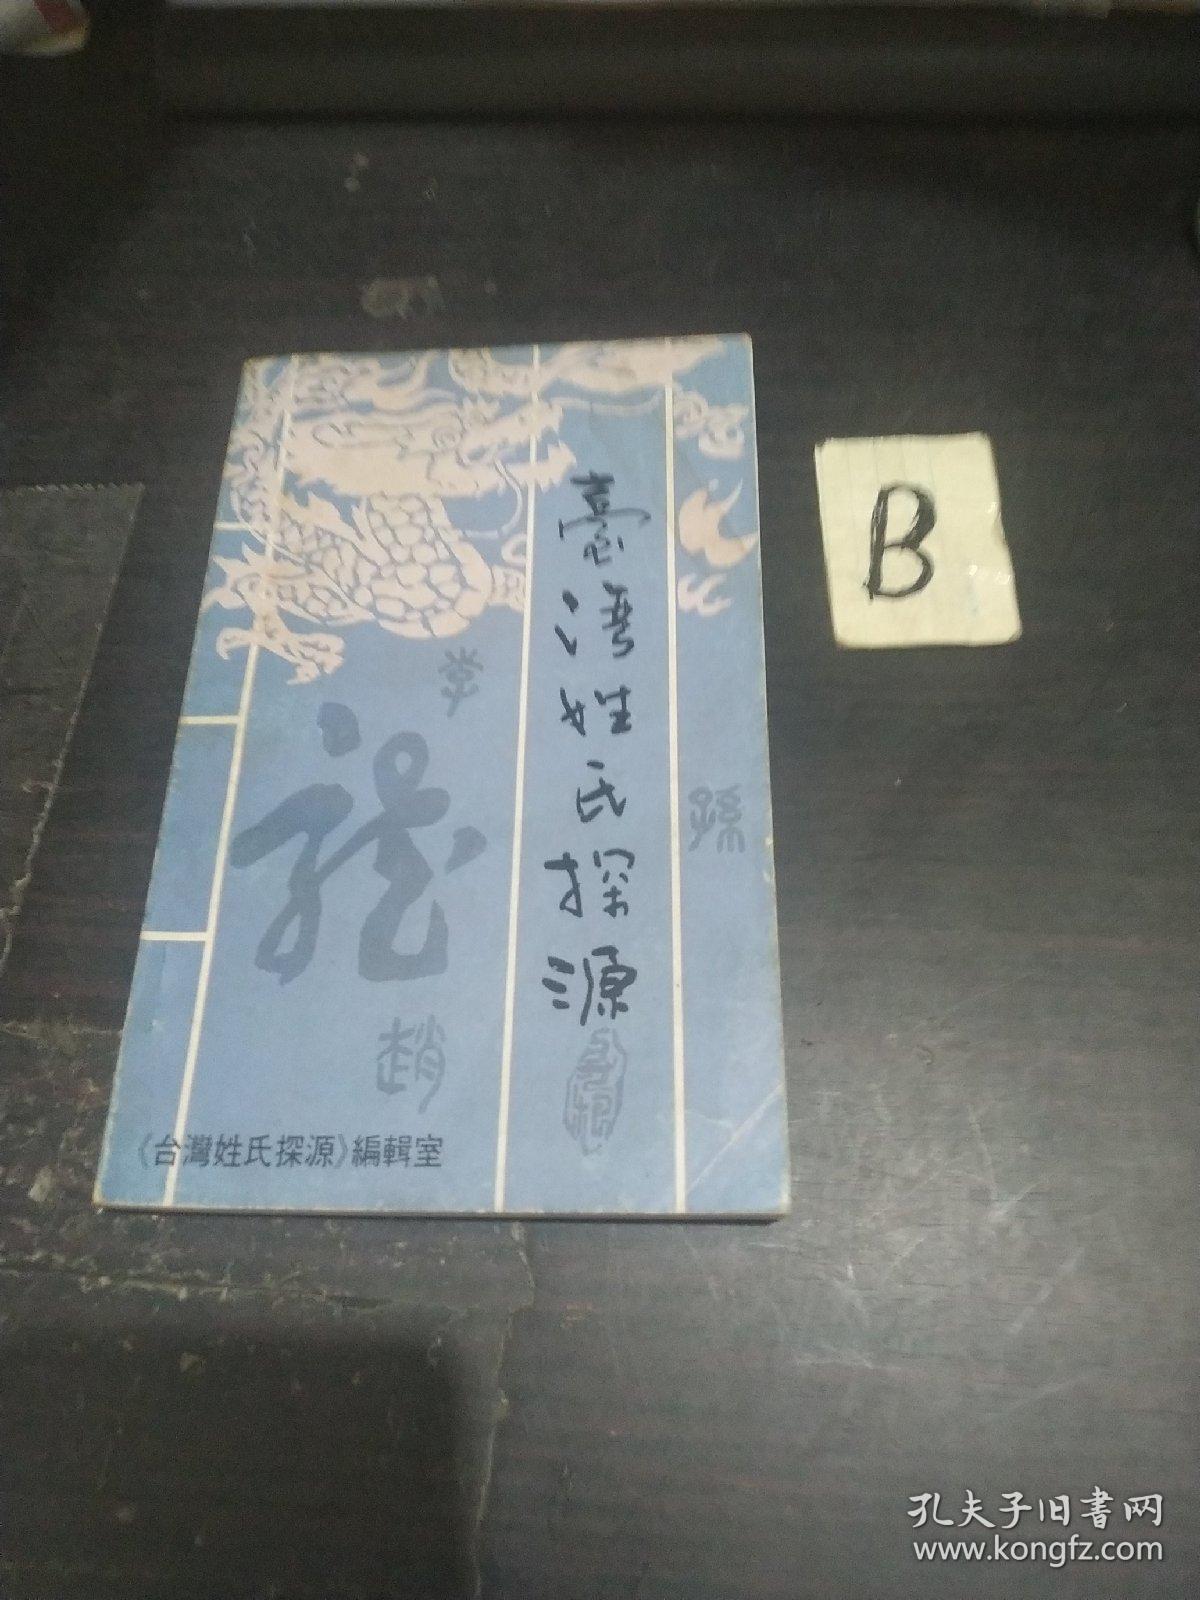 臺灣姓氏探源
李
龍
趙
孫
《台灣姓氏探源》編輯室
B
孔夫子旧书网
www.kongfz.com